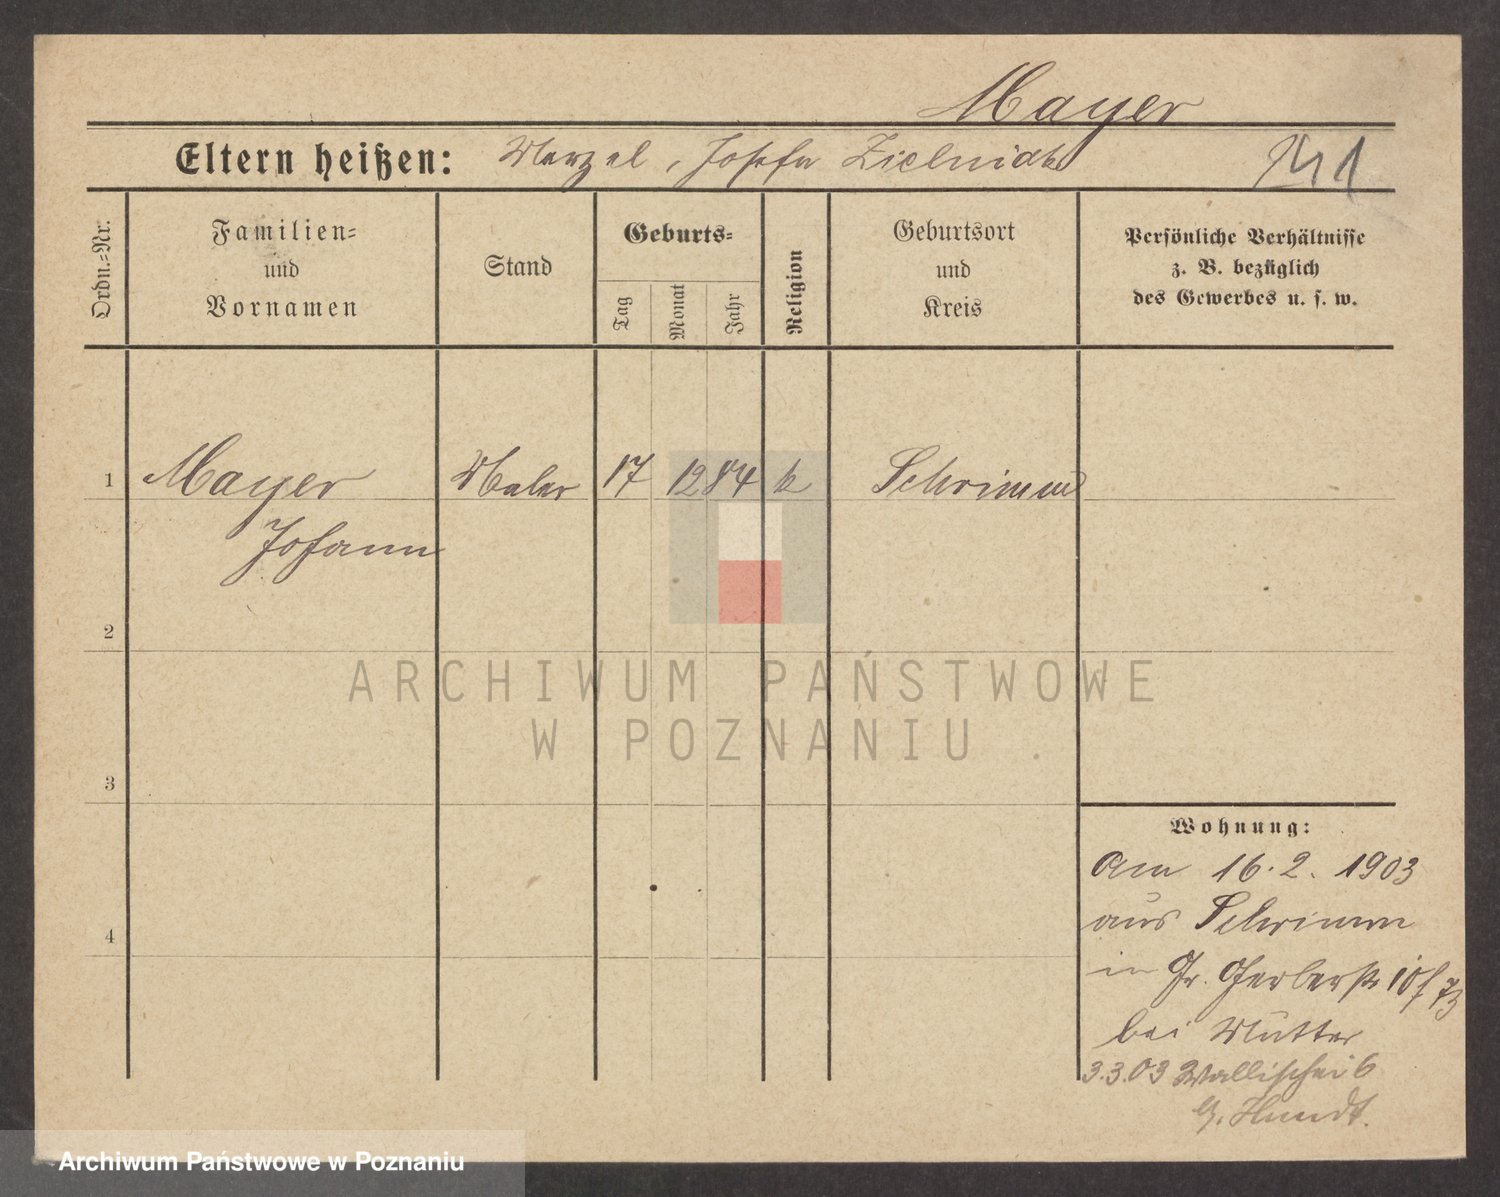 Mayer
Eltern heißen: Wenzel, Josefa Zielnicka
741
Ordn.-Nr.
Familien-
und
Vornamen
Stand
Geburts-
Tag
Monat
Jahr
Religion
Geburtsort
und
Kreis
Persönliche Verhältnisse
z. B. bezüglich
des Gewerbes u. s. w.
1 Mayer Maler 17 12 84 k Schrimm
Johann
2
3
4
Wohnung:
Am 16.2.1903
aus Schrimm
in Gr. Gerberstr 10
bei Mutter
3.3.03 Wallischei 6
b. Hundt.
ARCHIWUM PAŃSTWOWE
W POZNANIU .
Archiwum Państwowe w Poznaniu